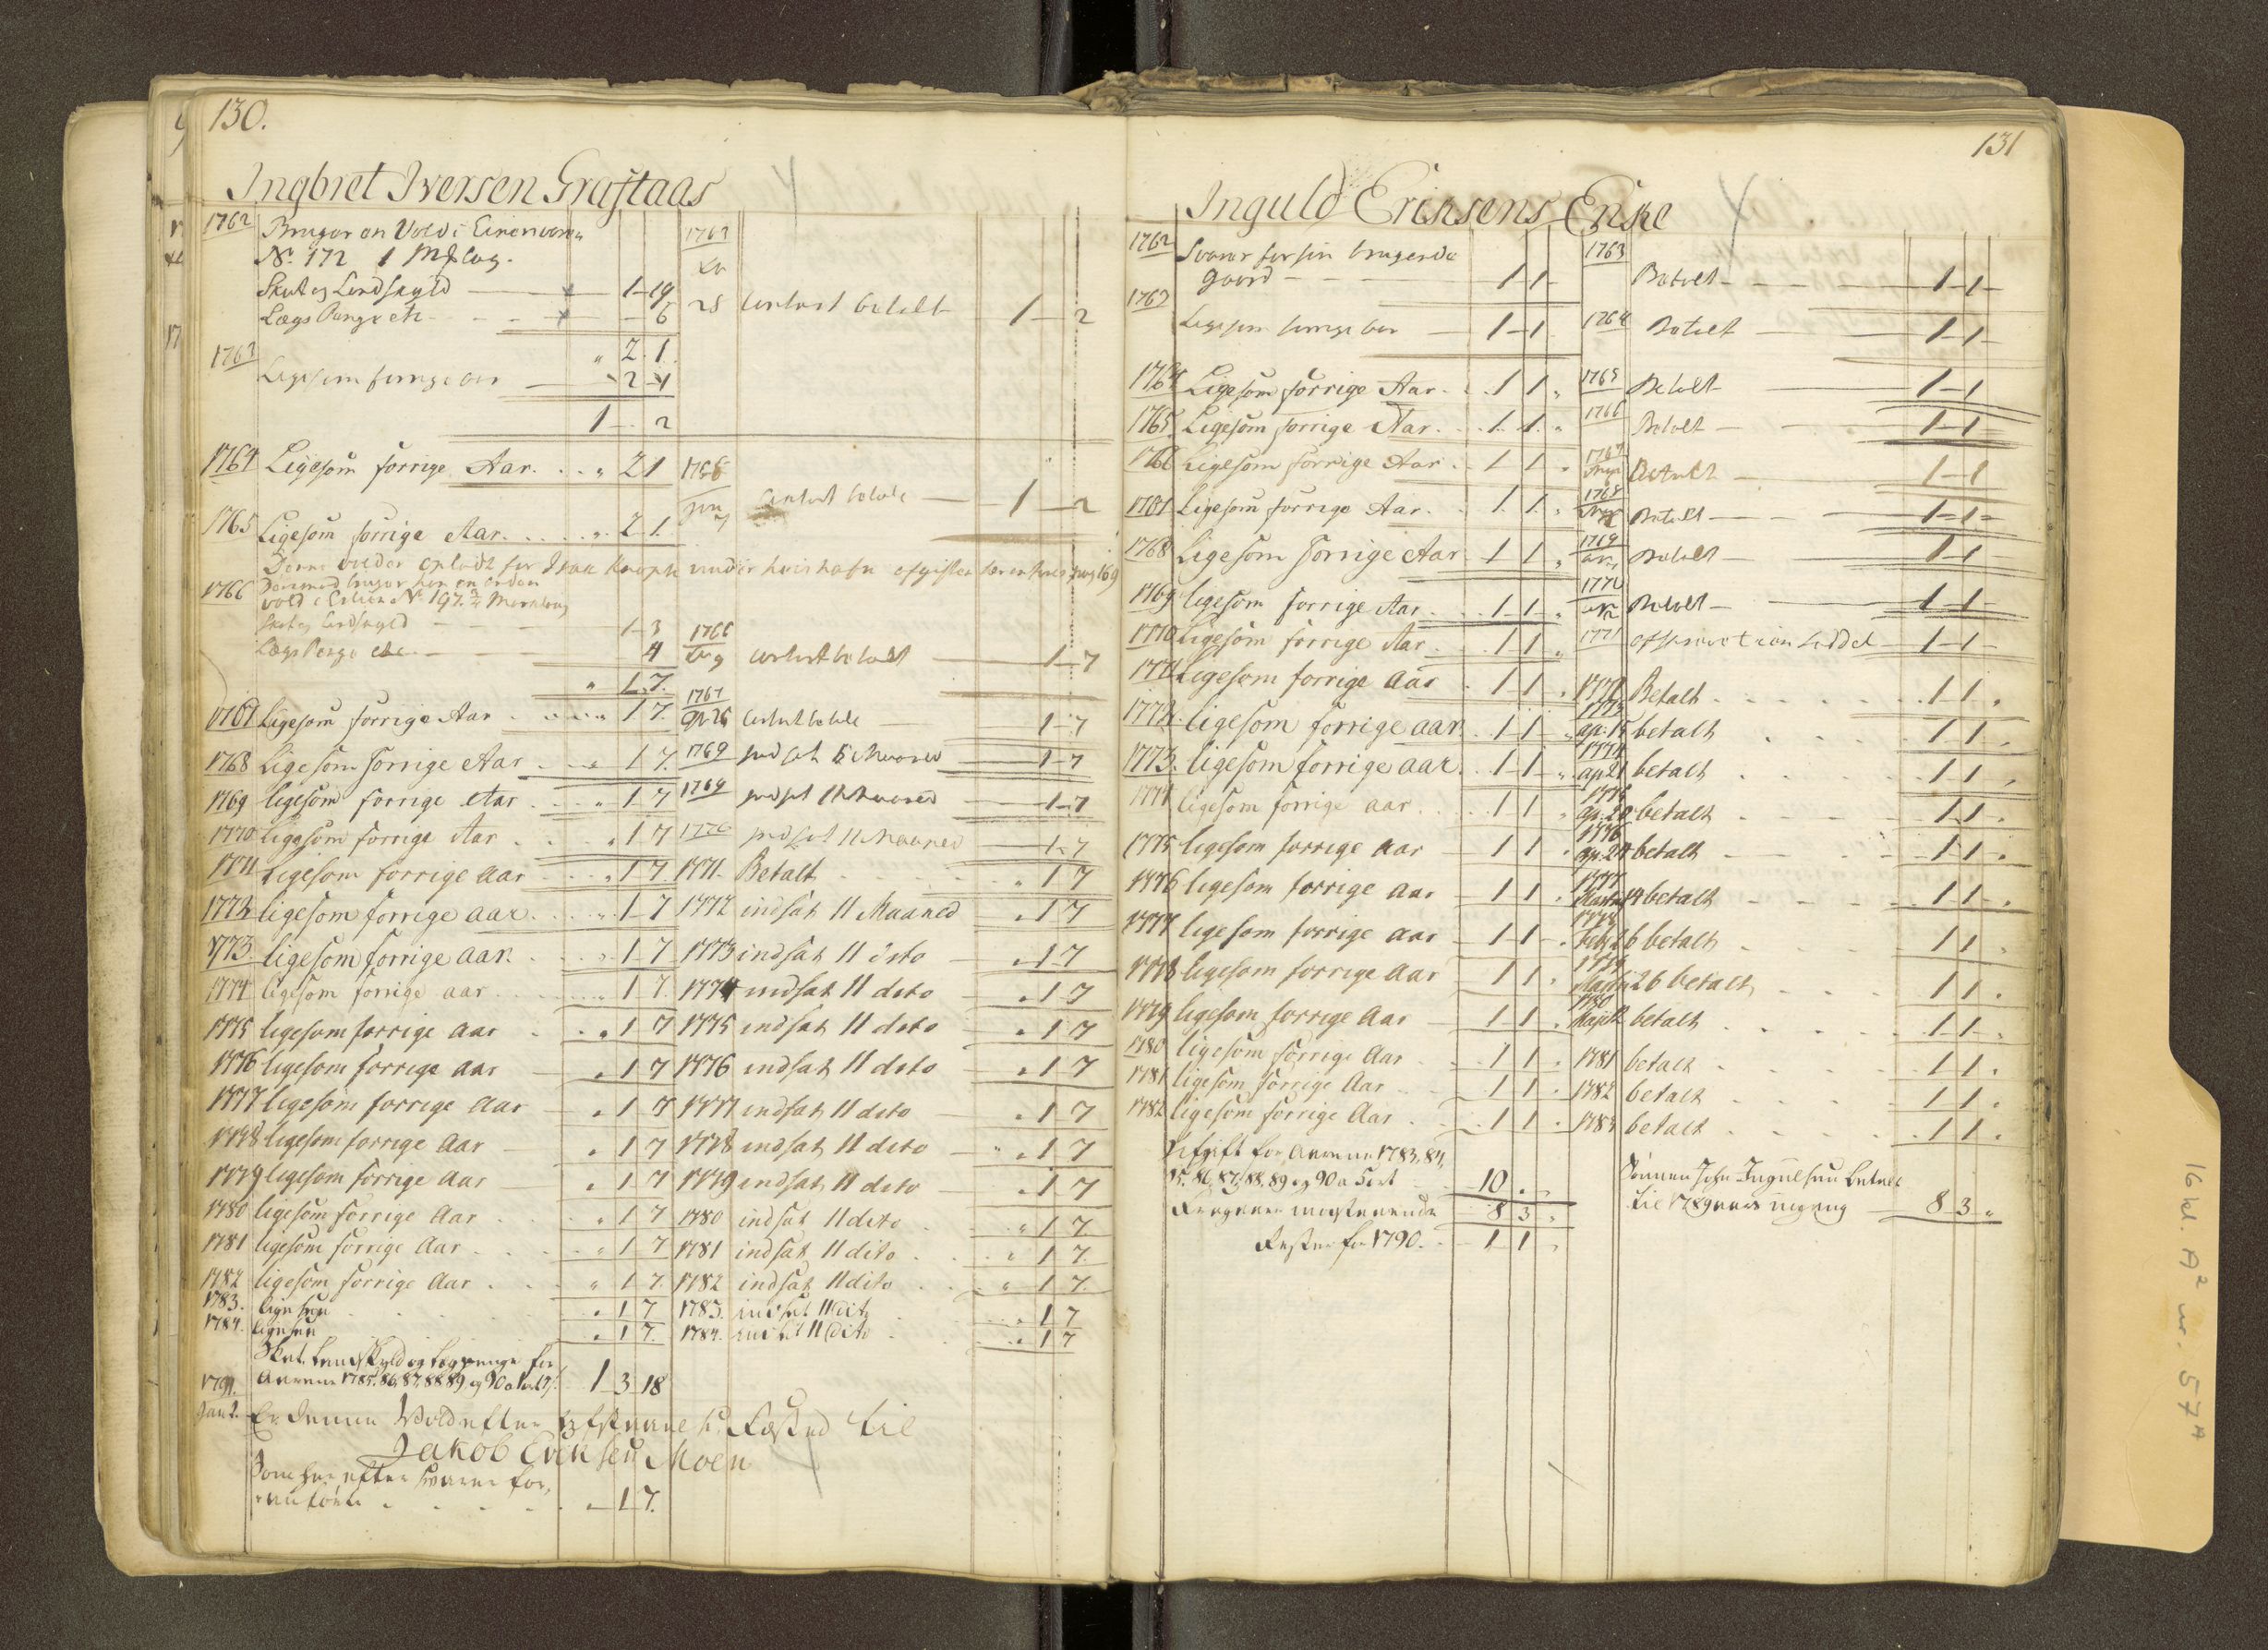 130.
Ingbret Iversen Grastaas
1762 Bruger en Vold i
No. 172 1 Mk lag.
Skat og Landskyld — 1-19
Lægs Penge etc — 6
" 2 1.
1763 Ligesom forrige aar — 2-1
1 — 2
1764 Ligesom forrige Aar . . " 2 1
1765 Ligesom forrige Aar . . . . . " 2 1.
Denne
1766
No. 197.
Skat og Landskyld — 1-3
Lægs Penge etc — 4
" 1. 7.
1767 Ligesom forrige Aar . . . . " 1 7.
1768 Ligesom forrige Aar . . . " 1 7.
1769 ligesom forrige Aar . . . " 1 7
1770 ligesom forrige Aar . . . " 1 7
1771 Ligesom forrige aar . . . " 1 7
1772 ligesom forrige aar . . . " 1-7
1773. ligesom forrige aar. . . . " 1-7
1774 ligesom forrige aar . . . . " 1 7.
1775 ligesom forrige aar . . . " 1 7
1776 ligesom forrige aar — " 1 7
1777 ligesom forrige aar — " 1 7
1778 ligesom forrige aar " 1 7
1779 ligesom forrige aar " 1 7
1780 ligesom forrige Aar . . . " 1 7
1781 ligesom forrige Aar . . . " 1 7
1782 ligesom forrige Aar . . . " 1 7.
1783. ligesom . . . . " 1 7
1784. ligesom " 1 7.
Skat, Landskyld og Lægspenge for
Aarene 1785. 86, 87, 88 89, og 90 1 3 18
1791.
Er denne Vold efter fæsted til
Jakob Eriksen Moen
Som her efter svarer for,
" 1 7.
1763
28 contant betalt — 1 — 2
contant betalt — 1 — 2
1766
contant betalt — 1-7
1767
contant betalt — 1-7
1769 — 1-7
1769 — 1-7
1770 indsat 11 Maaned — 1-7
1771. Betalt . . . . " 1 7
1772 indsat 11 Maaned " 1 7
1773 indsat 11 dito — " 1 7
1774 indsat 11 dito — " 1 7
1775 indsat 11 dito — " 1 7
1776 indsat 11 dito — " 1 7
1777 indsat 11 dito — " 1 7
1778 indsat 11 dito — " 1 7
1779 indsat 11 dito — " 1 7
1780 indsat 11 dito . . " 1 7.
1781 indsat 11 dito . . " 1 7.
1782 indsat 11 dito . . " 1 7.
1783. indsat 11 dito . . " 1 7
1784. indsat 11 dito . . " 1 7
131
Inguld Eriksens Enke
1762 Svarer for sin brugende
gaard — 1-1-
1763 Ligesom forrige aar — 1-1
1764 Ligesom forrige Aar . . 1 1 "
1765 Ligesom forrige Aar . . 1. 1. "
1766 Ligesom forrige Aar . . 1 1 "
1767 Ligesom forrige Aar . . 1. 1. "
1768 Ligesom forrige Aar . 1 1 "
1769 ligesom forrige Aar . . 1 1 "
1770 ligesom forrige Aar . . 1 1 "
1771 Ligesom forrige aar . 1-1 "
1772. ligesom forrige aar. . 1-1 "
1773. ligesom forrige aar. . 1-1 "
1774 ligesom forrige aar . . 1 1 "
1775 ligesom forrige aar — 1 1 "
1776 ligesom forrige aar — 1 1 "
1777 ligesom forrige aar — 1-1 "
1778 ligesom forrige aar — 1 1 "
1779 ligesom forrige aar — 1-1 "
1780 ligesom forrige Aar . . 1 1 "
1781 ligesom forrige Aar . . 1 1 "
1782 ligesom forrige Aar . . 1 1 "
Afgift for Aarene 1783, 84,
85, 86, 87, 88, 89 og 90 a 5 ort — 10 . "
8 3 "
Rester for 1790. . 1 1 "
1763 Betalt — 1-1-
1764 Betalt — 1-1
1765 Betalt — 1-1
1766 Betalt — 1-1
1767 Betalt — 1-1
1768 Betalt — 1-1-
1769 Betalt — 1-1
1770 Betalt — 1-1-
1771 — 1-1
1772 Betalt . . . . 1 1 "
1773
ap. 15 betalt . . . 1 1 "
1774
ap. 21 betalt . . . 1 1 "
1775
ap. 20 betalt . . . 1 1 "
1776
ap. 24 betalt — 1 1 "
1777
betalt — 1 1 "
1778
betalt . . . 1 1 "
1779
26 betalt . . . 1 1 "
1780
betalt . . . 1 1 "
1781 betalt . . . 1 1 "
1782 betalt . . . 1 1 "
1783 betalt . . . 1 1 "
Sønnen John Ingulsen betalt
til 1789 aars udgang — 8 3 "
16 kl. A² nr. 57A